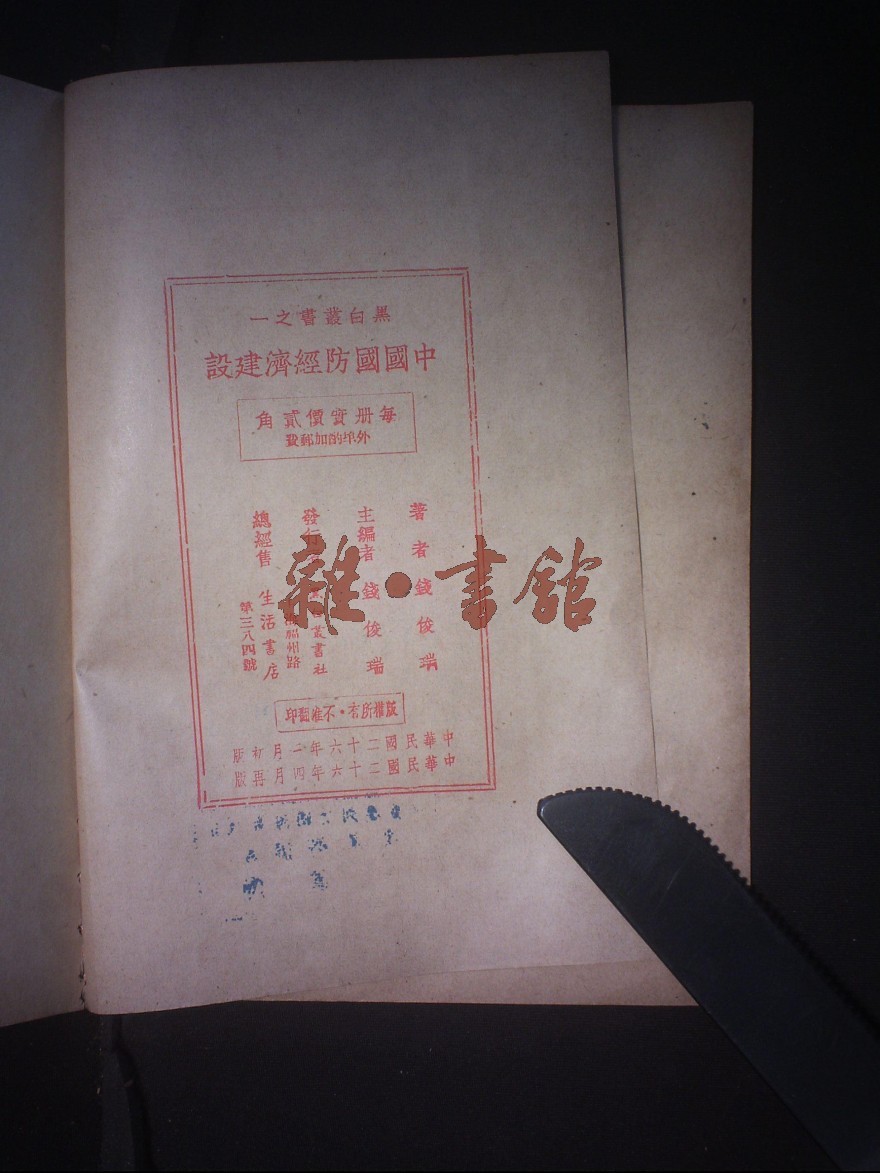 黑白叢書之一
中國國防經濟建設
每册實價貳角
外埠酌加郵費
著者 錢俊瑞
主編者 錢俊瑞
發行 叢書社
福州路
總經售 生活書店
第三八四號
版權所有・不准翻印
中華民國二十六年二月初版
中華民國二十六年四月再版
雜・書館